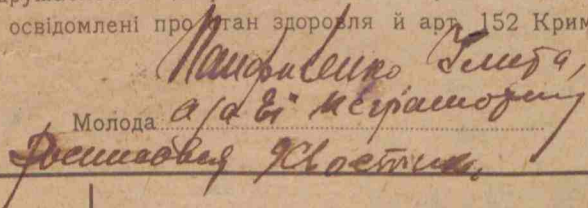 освідомлені про стан здоровля й арт. 152 Крим
Панфиленко Улита,
Молода а за её неграмотну
расписався Хвостик.